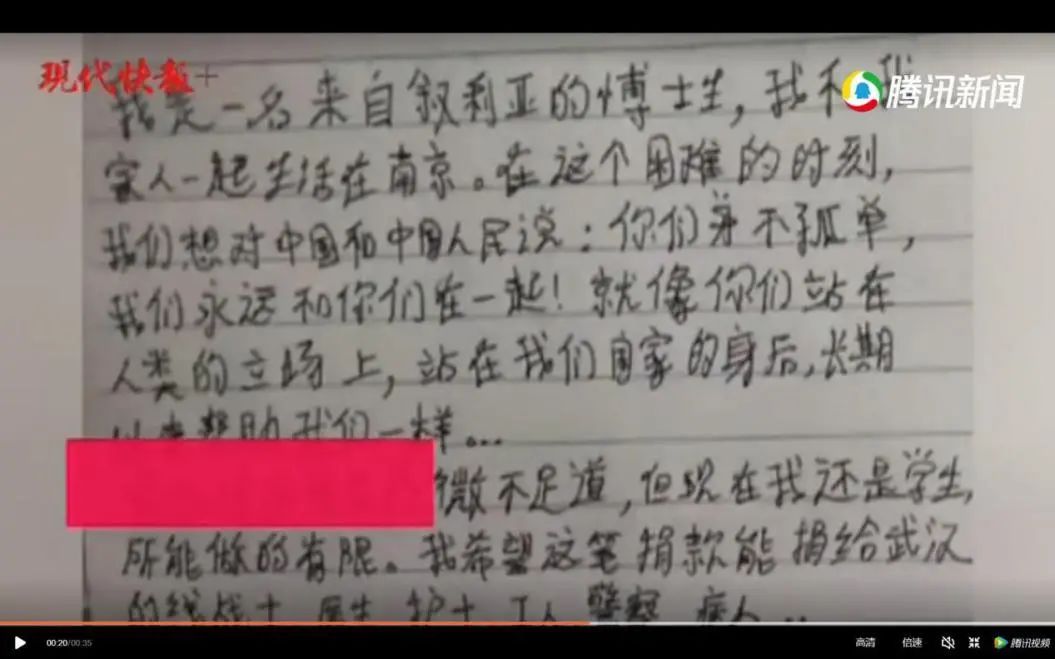 现代快报+
腾讯新闻
我是一名来自叙利亚的博士生，我和我
家人一起生活在南京。在这个困难的时刻，
我们想对中国和中国人民说：你们并不孤单，
我们永远和你们在一起！就像你们站在
人类的立场上，站在我们国家的身后，长期
以来帮助我们一样...
微不足道，但现在我还是学生，
所能做的有限。我希望这笔捐款能捐给武汉
的线战士 医生 护士 工人 警察 病人...
00:20/00:35
高清 倍速 腾讯视频